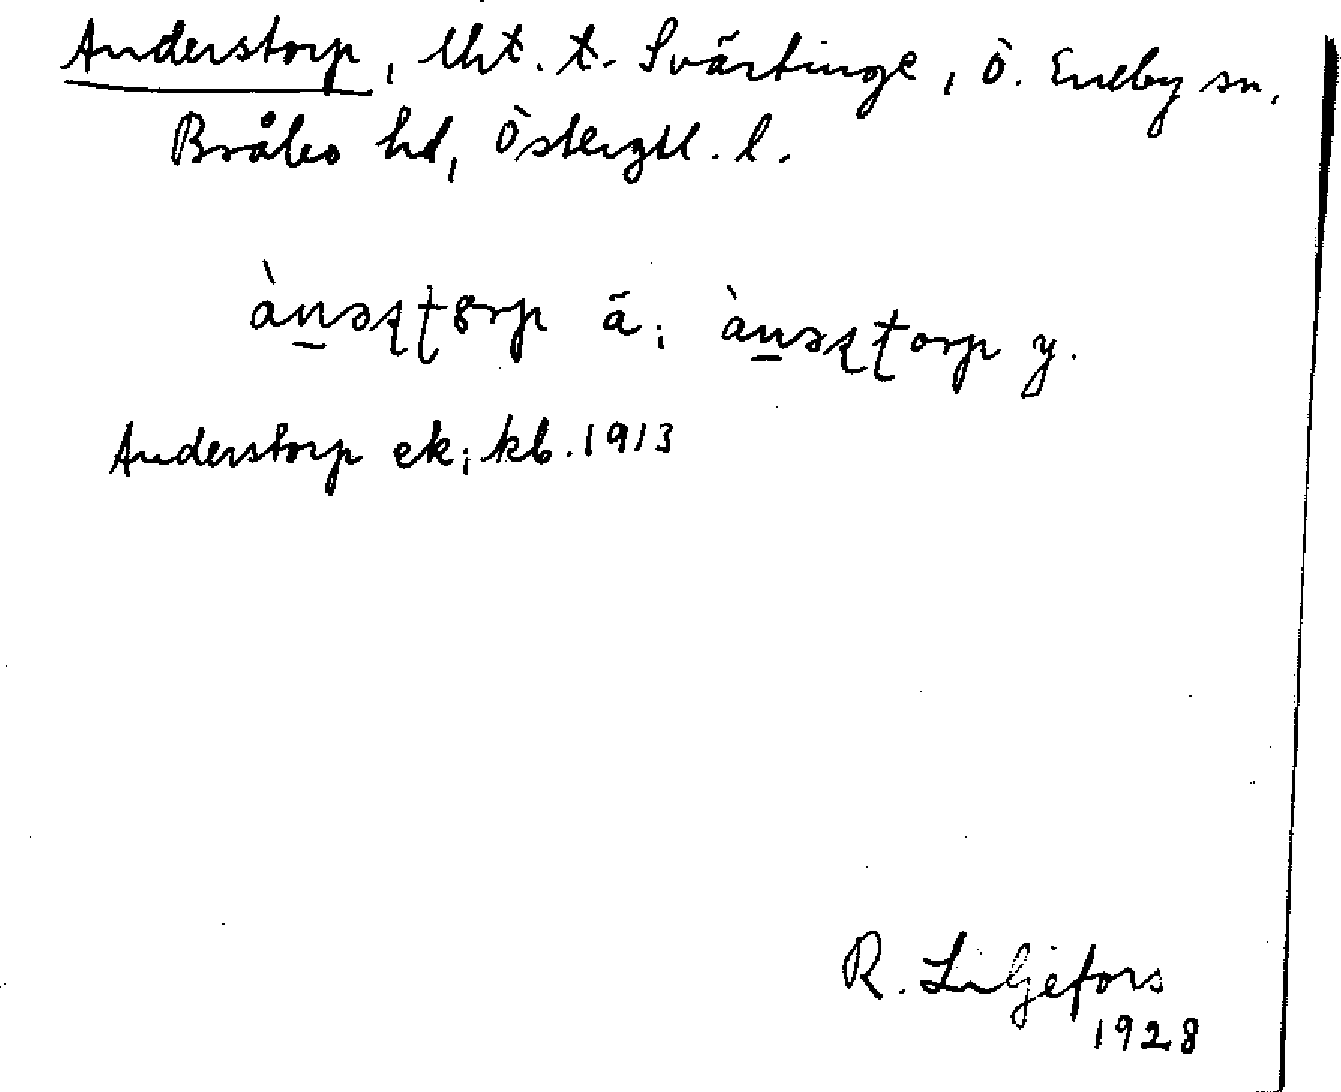 Anderstorp, lht. t. Svärtinge, Ö. Eneby sn,
Bråbo hd, Östergtl. l.
ànəʂʈɞrp ä; ànəʂʈorp y.
Anderstorp ek; kb. 1913
R. Liljefors
1928